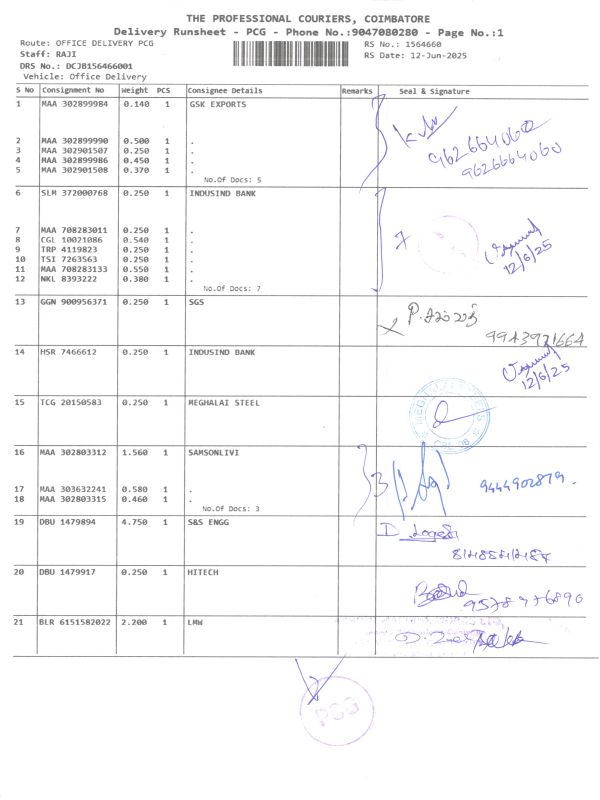 THE PROFESSIONAL COURIERS, COIMBATORE
Delivery Runsheet - PCG - Phone No.:9047080280 - Page No.:1
Route: OFFICE DELIVERY PCG RS No.: 1564660
Staff: RAJI RS Date: 12-Jun-2025
DRS No.: DCJB156466001
Vehicle: Office Delivery
S No Consignment No Weight PCS Consignee Details Remarks Seal & Signature
1 MAA 302899984 0.140 1 GSK EXPORTS
2 MAA 302899990 0.500 1 .
962664060
3 MAA 302901507 0.250 1 .
9626664060
4 MAA 302899986 0.450 1 .
5 MAA 302901508 0.370 1 .
No.Of Docs: 5
6 SLM 372000768 0.250 1 INDUSIND BANK
7 MAA 708283011 0.250 1 .
8 CGL 10021086 0.540 1 . 7
9 TRP 4119823 0.250 1 .
10 TSI 7263563 0.250 1 .
12/6/25
11 MAA 708283133 0.550 1 .
12 NKL 8393222 0.380 1 .
No.Of Docs: 7
13 GGN 900956371 0.250 1 SGS
9943921664
14 HSR 7466612 0.250 1 INDUSIND BANK
12/6/25
15 TCG 20150583 0.250 1 MEGHALAI STEEL
16 MAA 302803312 1.560 1 SAMSONLIVI
17 MAA 303632241 0.580 1 . 3 9444902879.
18 MAA 302803315 0.460 1 .
No.Of Docs: 3
19 DBU 1479894 4.750 1 S&S ENGG
D. Logesh
20 DBU 1479917 0.250 1 HITECH
9578976890
21 BLR 6151582022 2.200 1 LMW
PCG